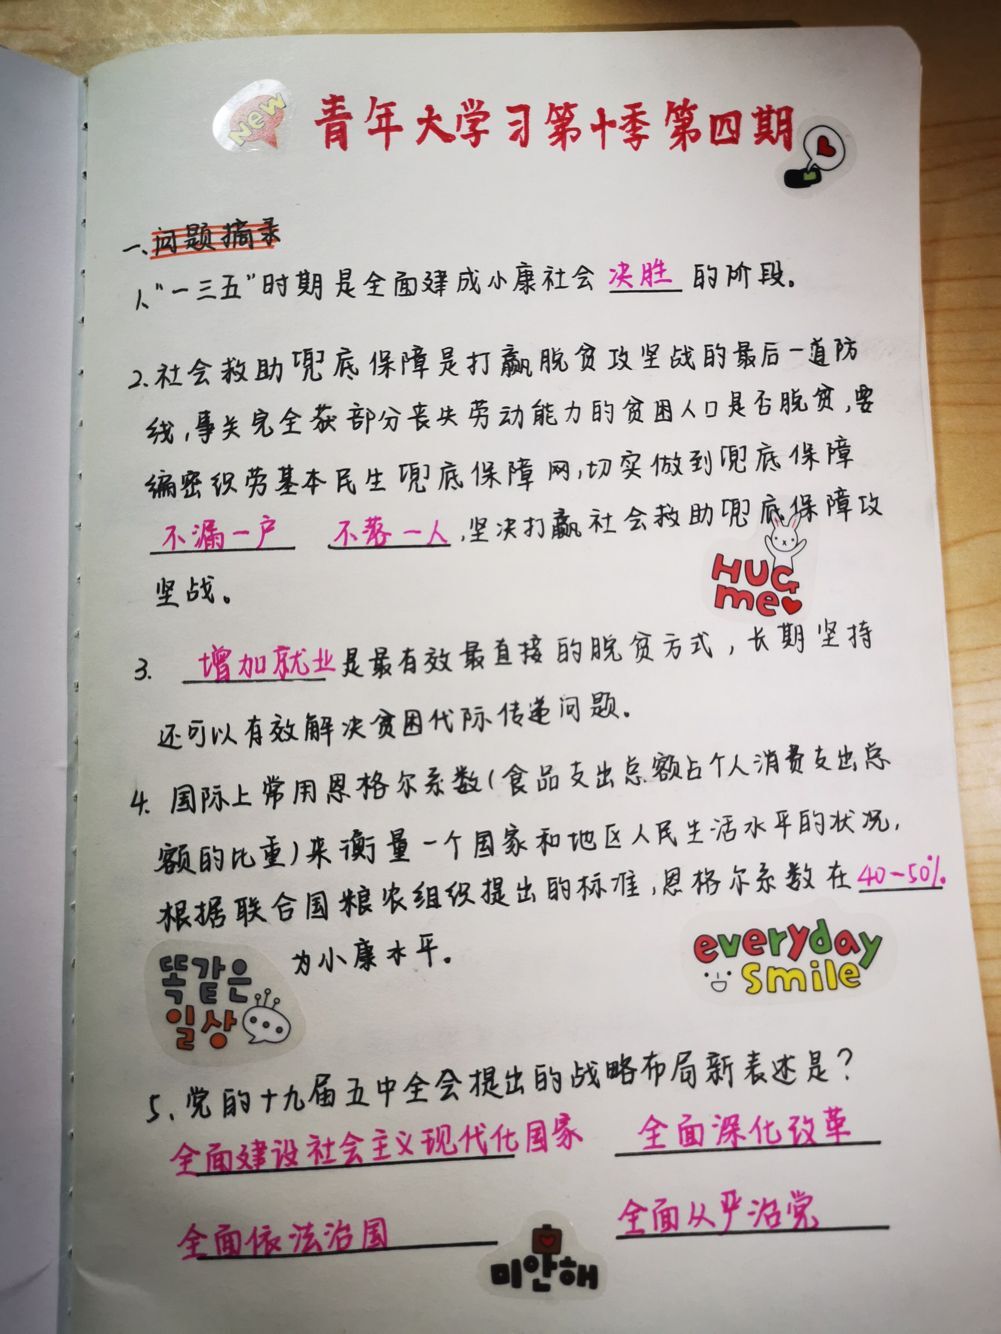 New
青年大学习第十季第四期
一、问题摘录
1、“一三五”时期是全面建成小康社会 决胜 的阶段。
2.社会救助兜底保障是打赢脱贫攻坚战的最后一道防
线,事关完全获部分丧失劳动能力的贫困人口是否脱贫,要
编密织劳基本民生兜底保障网,切实做到兜底保障
不漏一户 不落一人,坚决打赢社会救助兜底保障攻
坚战。
HUG
me
3. 增加就业是最有效最直接的脱贫方式,长期坚持
还可以有效解决贫困代际传递问题。
4. 国际上常用恩格尔系数(食品支出总额占个人消费支出总
额的比重)来衡量一个国家和地区人民生活水平的状况,
根据联合国粮农组织提出的标准,恩格尔系数在40-50%
为小康水平。
everyday
smile
똑같은
일상
5、党的十九届五中全会提出的战略布局新表述是?
全面建设社会主义现代化国家 全面深化改革
全面依法治国 全面从严治党
미안해